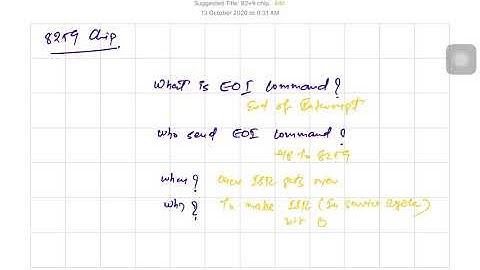 Suggested Title: 8259 chip. Edit
13 October 2020 at 9:31 AM
8259 Chip.
What is EOI Command?
End of Interrupt
Who send EOI Command?
μp to 8259
when? once ISR gets over
why? To make ISR (In service Register)
bit 0